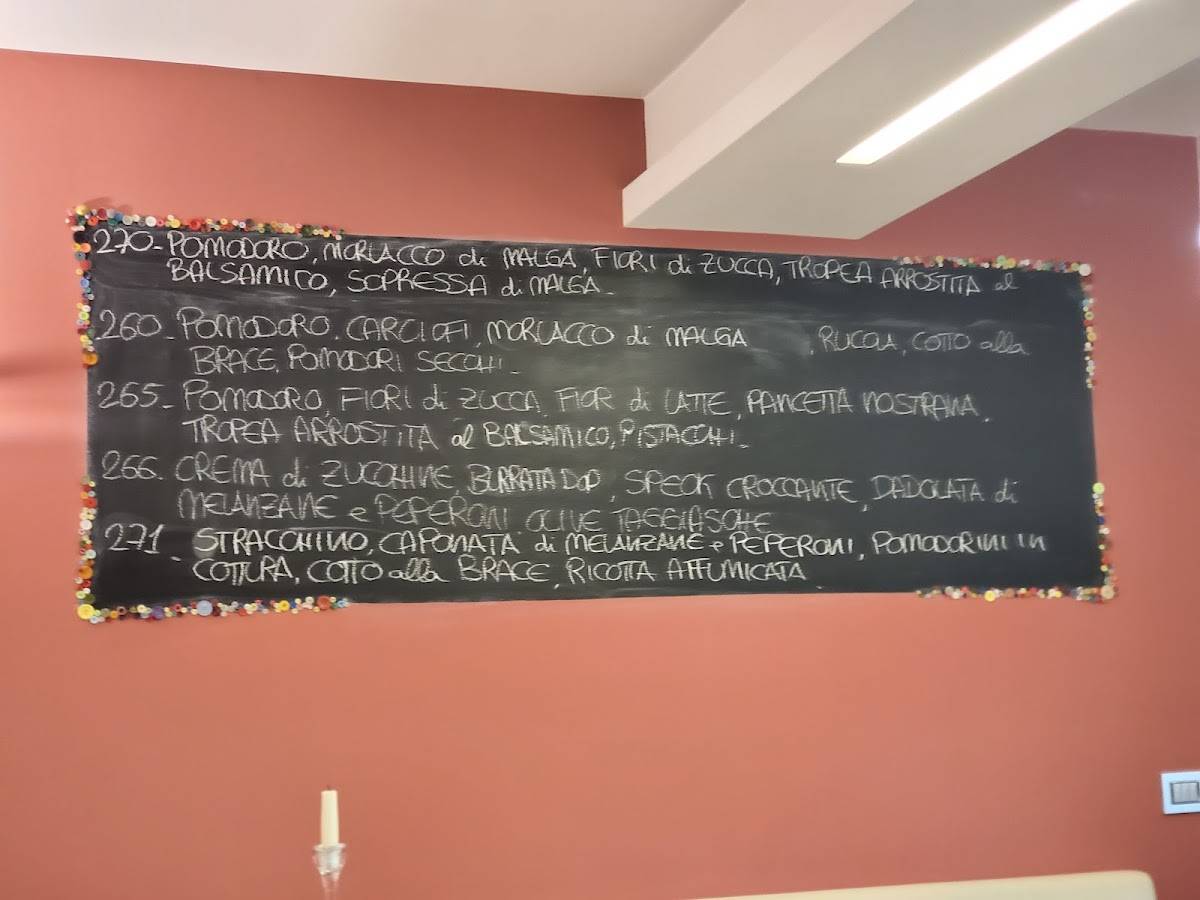 270- POMODORO, MORLACCO di MALGA, FIORI di ZUCCA, TROPEA ARROSTITA al
BALSAMICO, SOPRESSA di MALGA-
260- POMODORO, CARCIOFI, MORLACCO di MALGA , RUCOLA, COTTO alla
BRACE, POMODORI SECCHI-
265- POMODORO, FIORI di ZUCCA, FIOR di LATTE, PANCETTA NOSTRANA,
TROPEA ARROSTITA al BALSAMICO, PISTACCHI-
266. CREMA di ZUCCHINE, BURRATA DOP, SPECK CROCCANTE, DADOLATA di
MELANZANE e PEPERONI OLIVE TAGGIASCHE
271- STRACCHINO, CAPONATA di MELANZANE e PEPERONI, POMODORINI IN
COTTURA, COTTO alla BRACE, RICOTTA AFFUMICATA